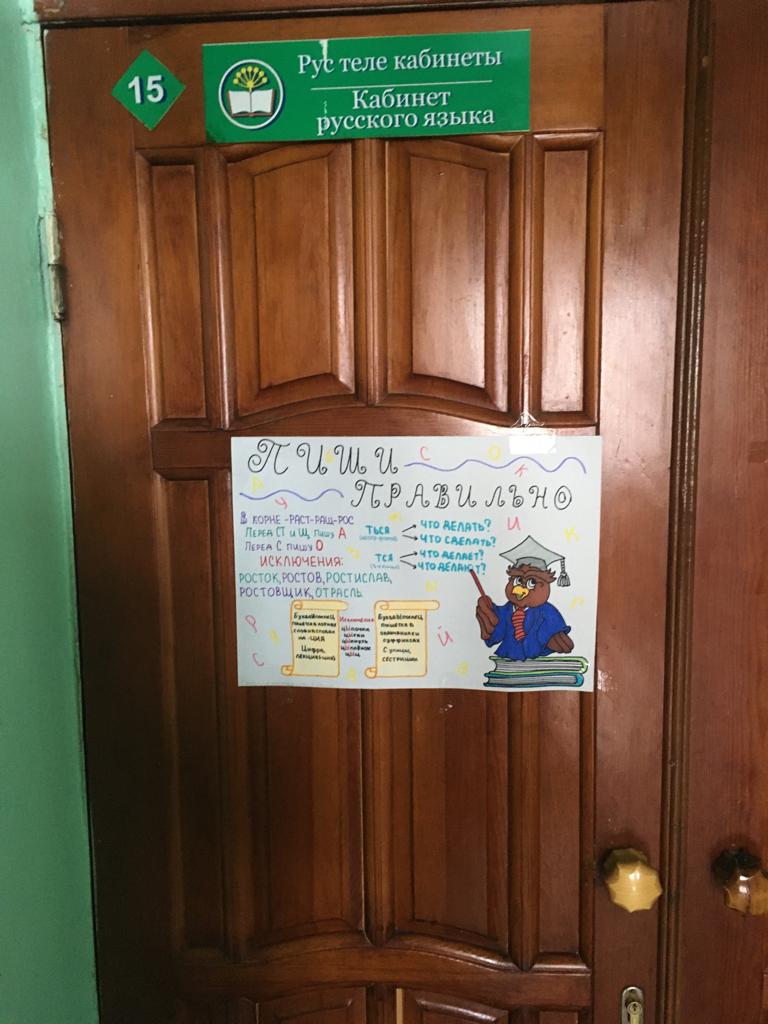 15
Рус теле кабинеты
Кабинет
русского языка
ПИШИ
ПРАВИЛЬНО
В КОРНЕ -РАСТ-РАЩ-РОС
ПЕРЕД СТ и Щ пишу А
ПЕРЕД С пишу О
ИСКЛЮЧЕНИЯ:
РОСТОК, РОСТОВ, РОСТИСЛАВ,
РОСТОВЩИК, ОТРАСЛЬ
ТЬСЯ
ЧТО ДЕЛАТЬ?
ЧТО СДЕЛАТЬ?
ТСЯ
ЧТО ДЕЛАЕТ?
ЧТО ДЕЛАЮТ?
пишется в корне
на -ция
Цифра,
лекция
Исключения
цыпочки
цыган
цыкнуть
цыц
пишется в
окончаниях и
суффиксах
С улицы,
сестрицын